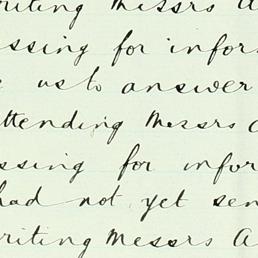 riting Messrs A
ssing for infor
us to answer
ttending Messrs A
ssing for infor
had not yet sen
riting Messrs A